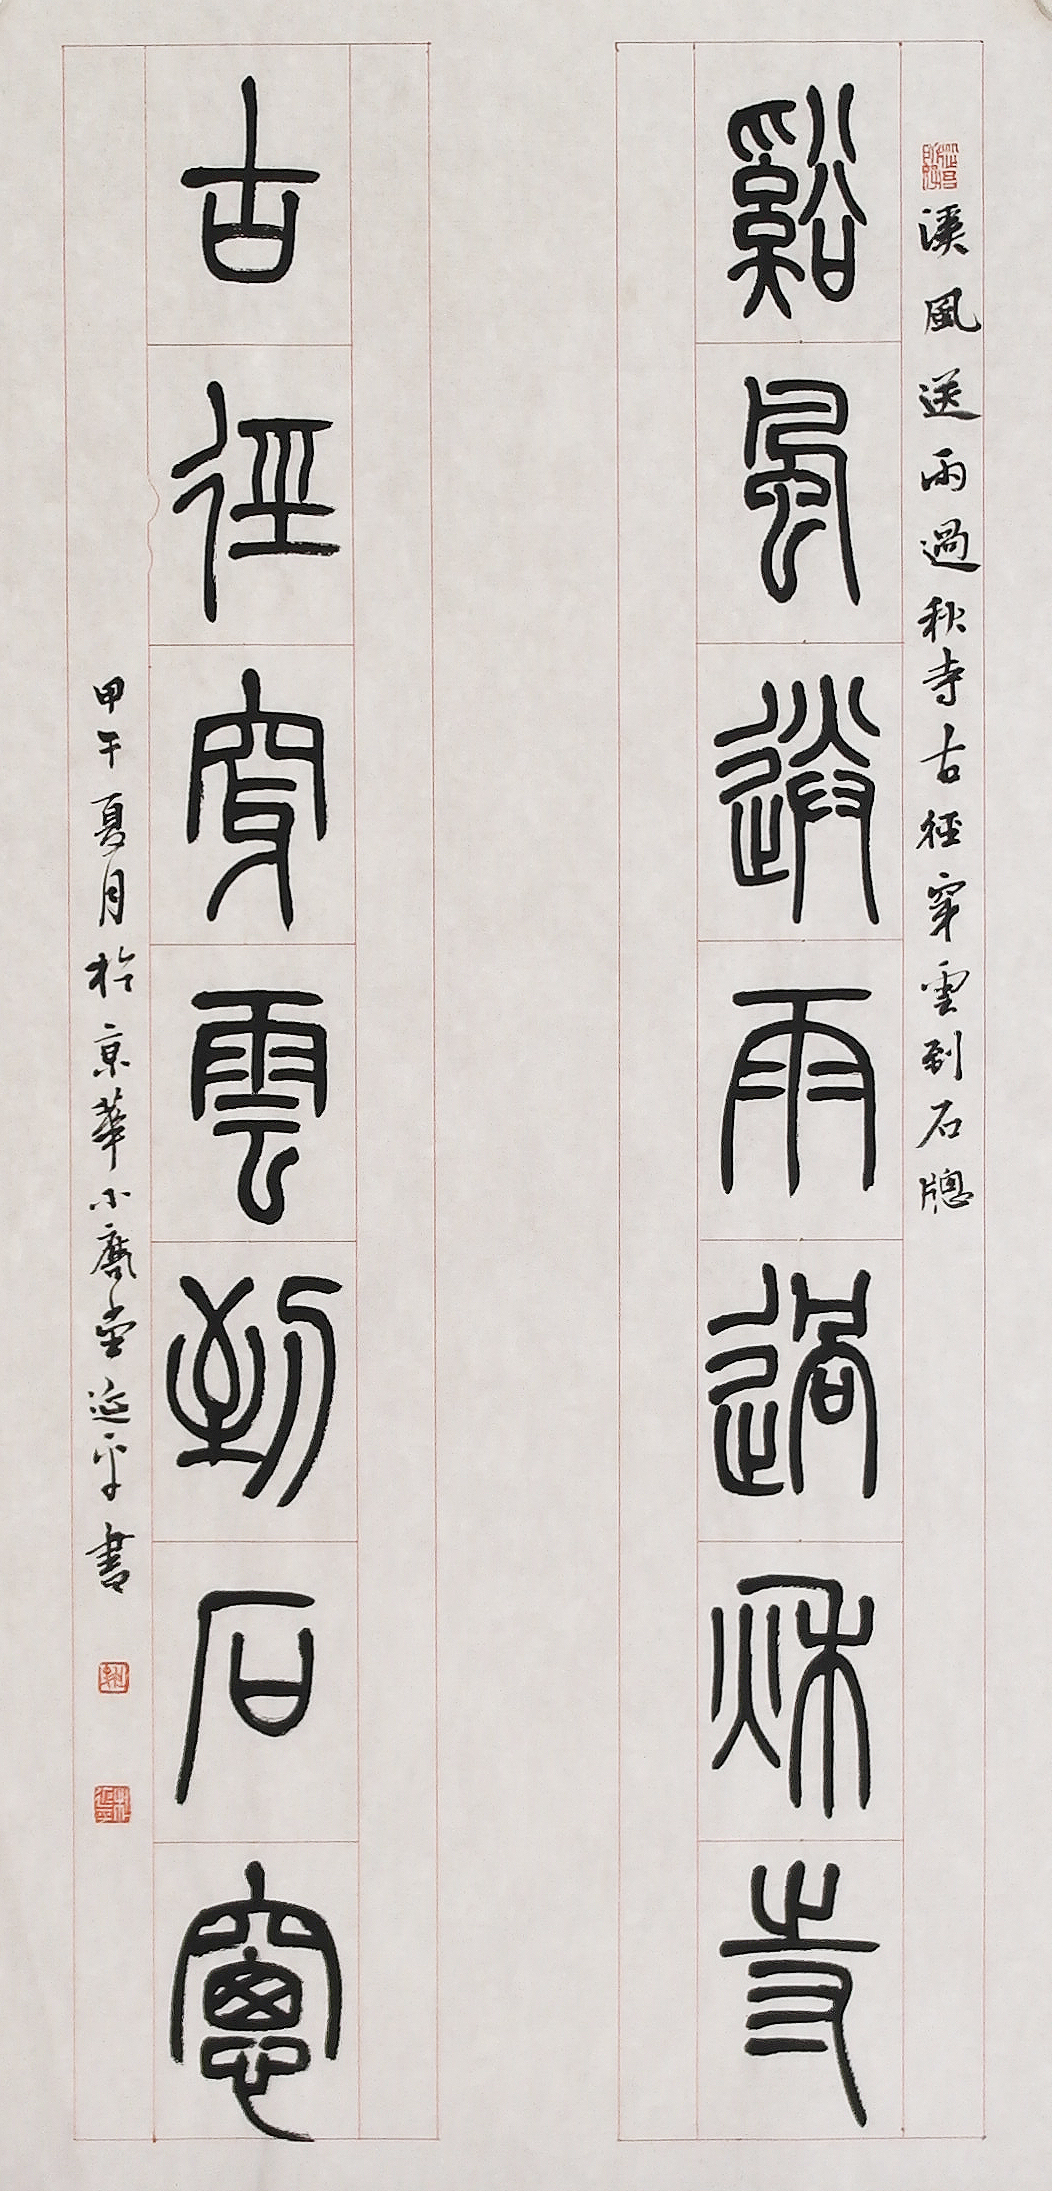 溪風送雨過秋寺古徑穿雲到石牕
谿風送雨過秋寺
古徑穿雲到石窻
甲午夏月於京華小磨堂延平書